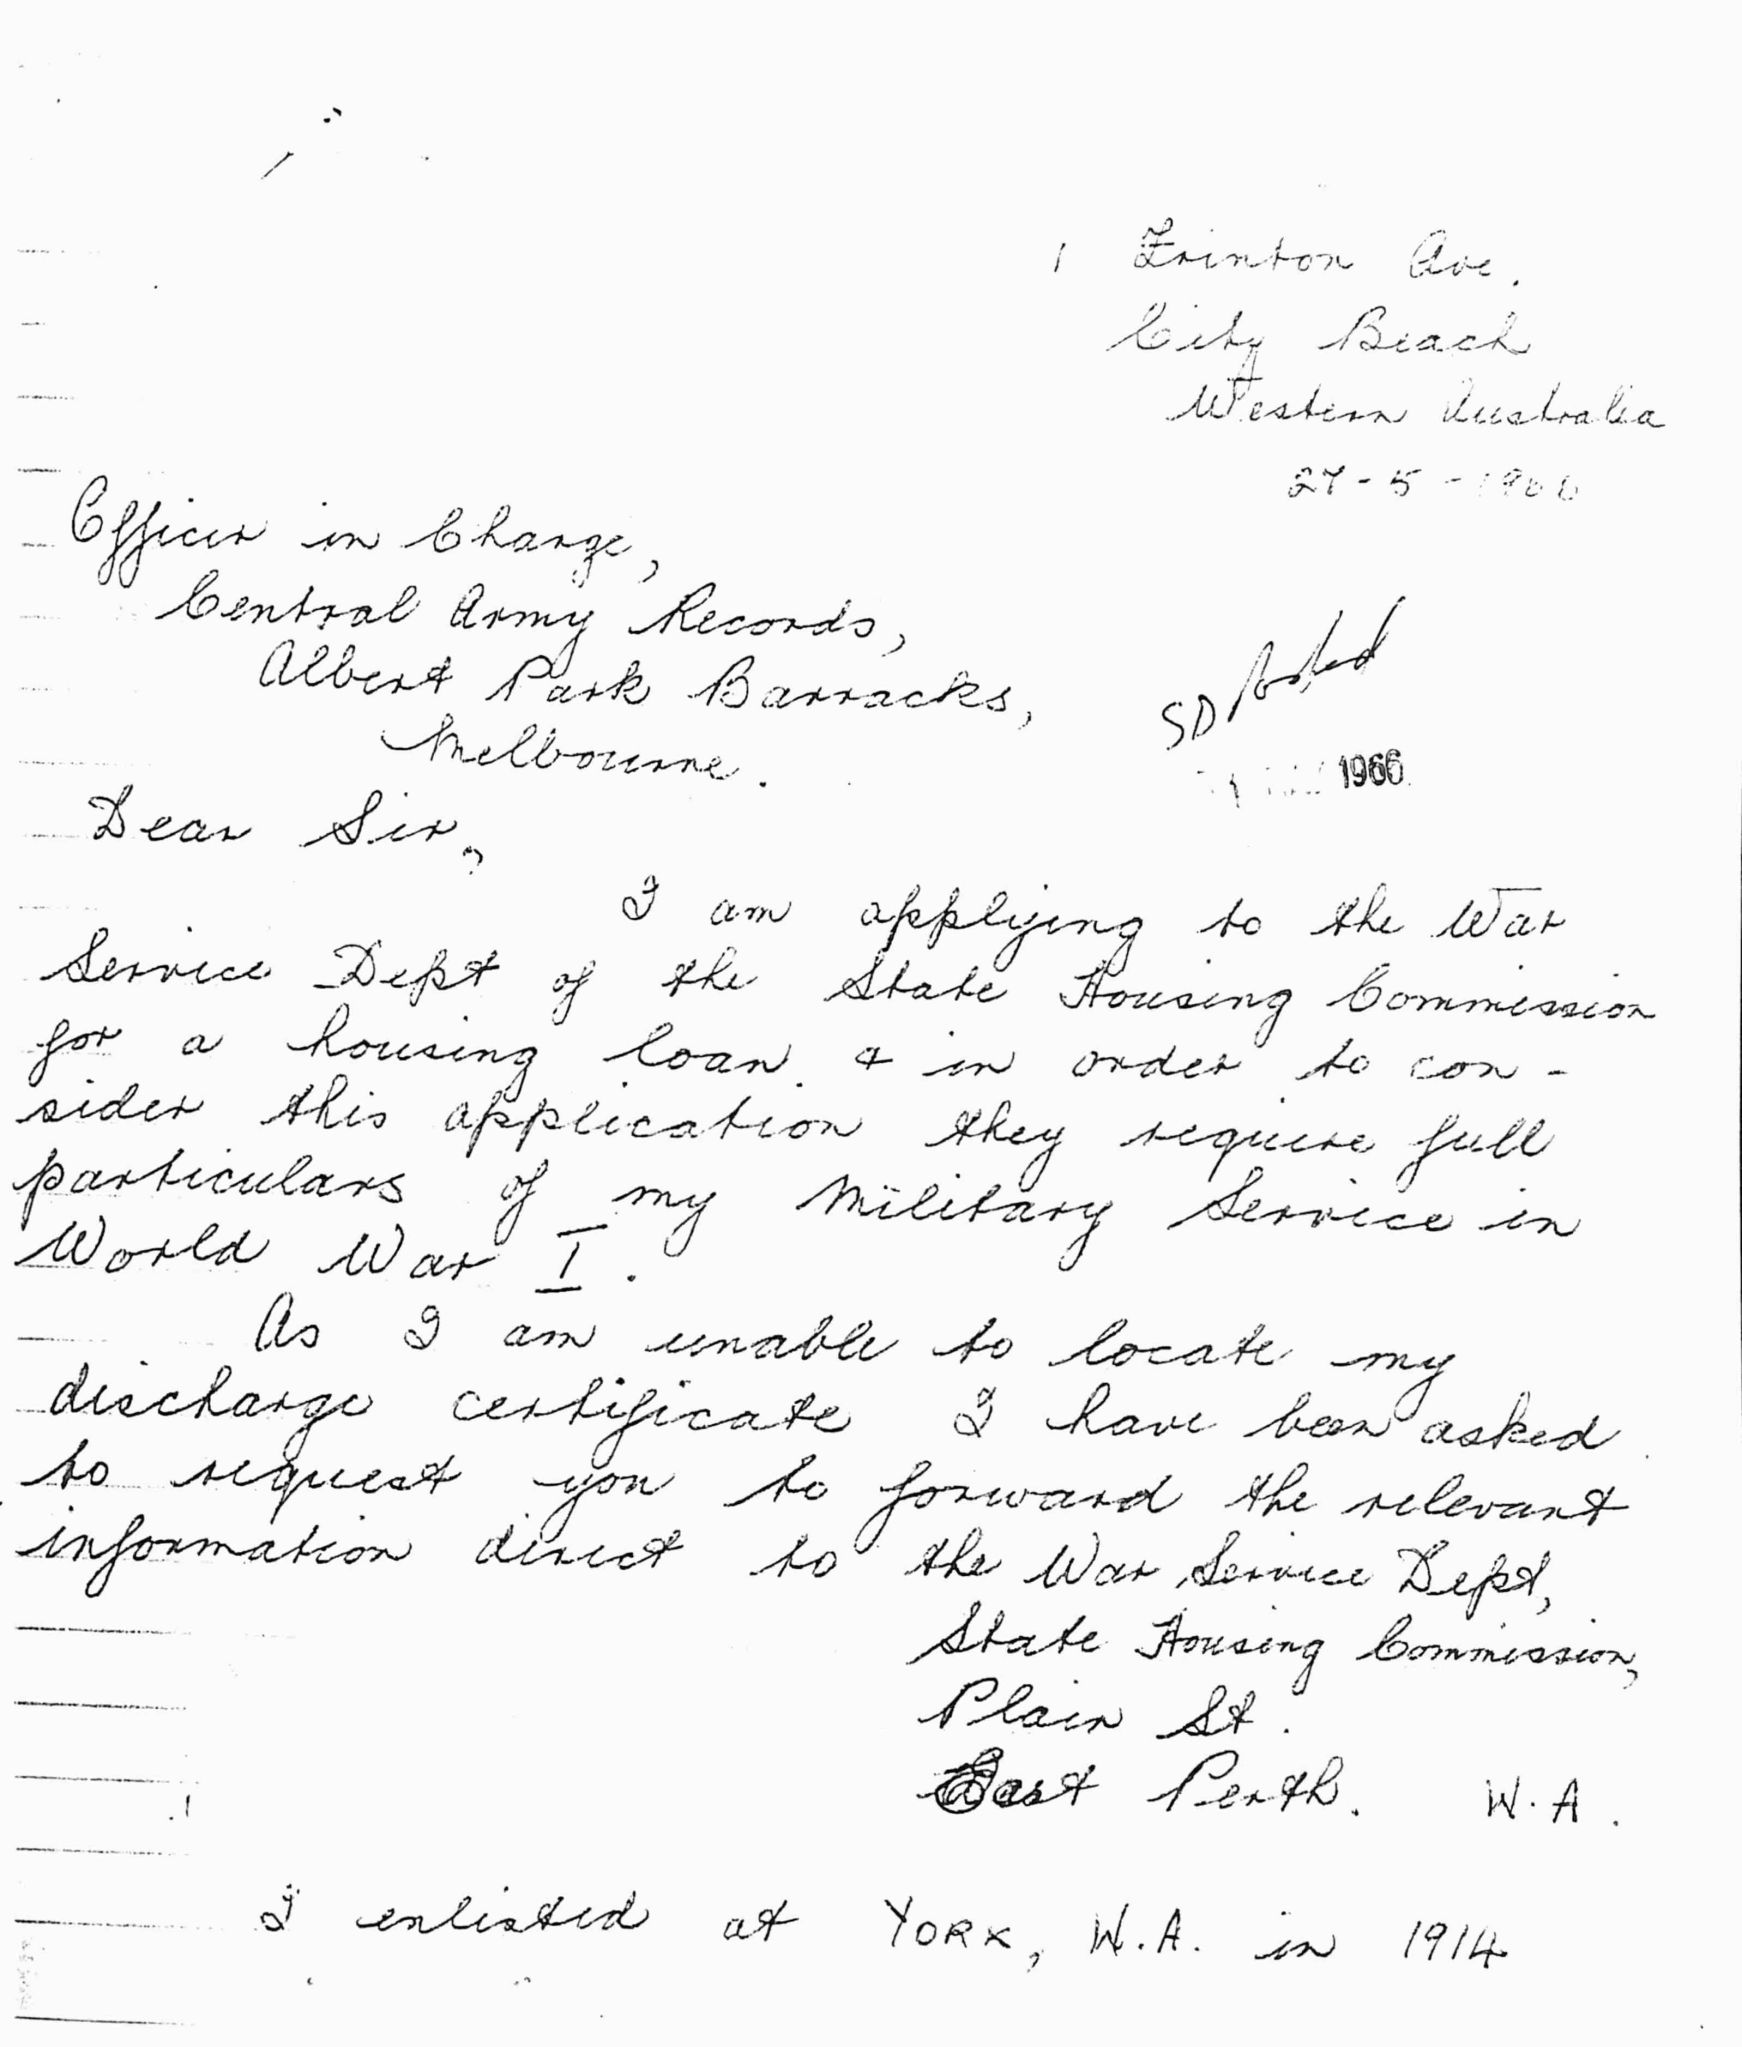 1 Frinton Ave.
City Beach
Western Australia
27-5-1966
Officer in Charge,
Central Army Records,
Albert Park Barracks,
Melbourne.
SD
1966
Dear Sir,
I am applying to the War
Service Dept of the State Housing Commission
for a housing loan & in order to con-
sider this application they require full
particulars of my Military Service in
World War I.
As I am unable to locate my
discharge certificate I have been asked
to request you to forward the relevant
information direct to the War Service Dept,
State Housing Commission,
Plain St.
East Perth. W.A.
I enlisted at YORK, W.A. in 1914